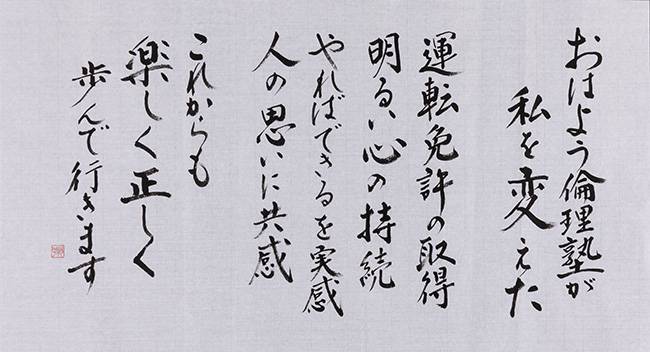 おはよう倫理塾が
私を変えた
運転免許の取得
明るい心の持続
やればできるを実感
人の思いに共感
これからも
楽しく正しく
歩んで行きます